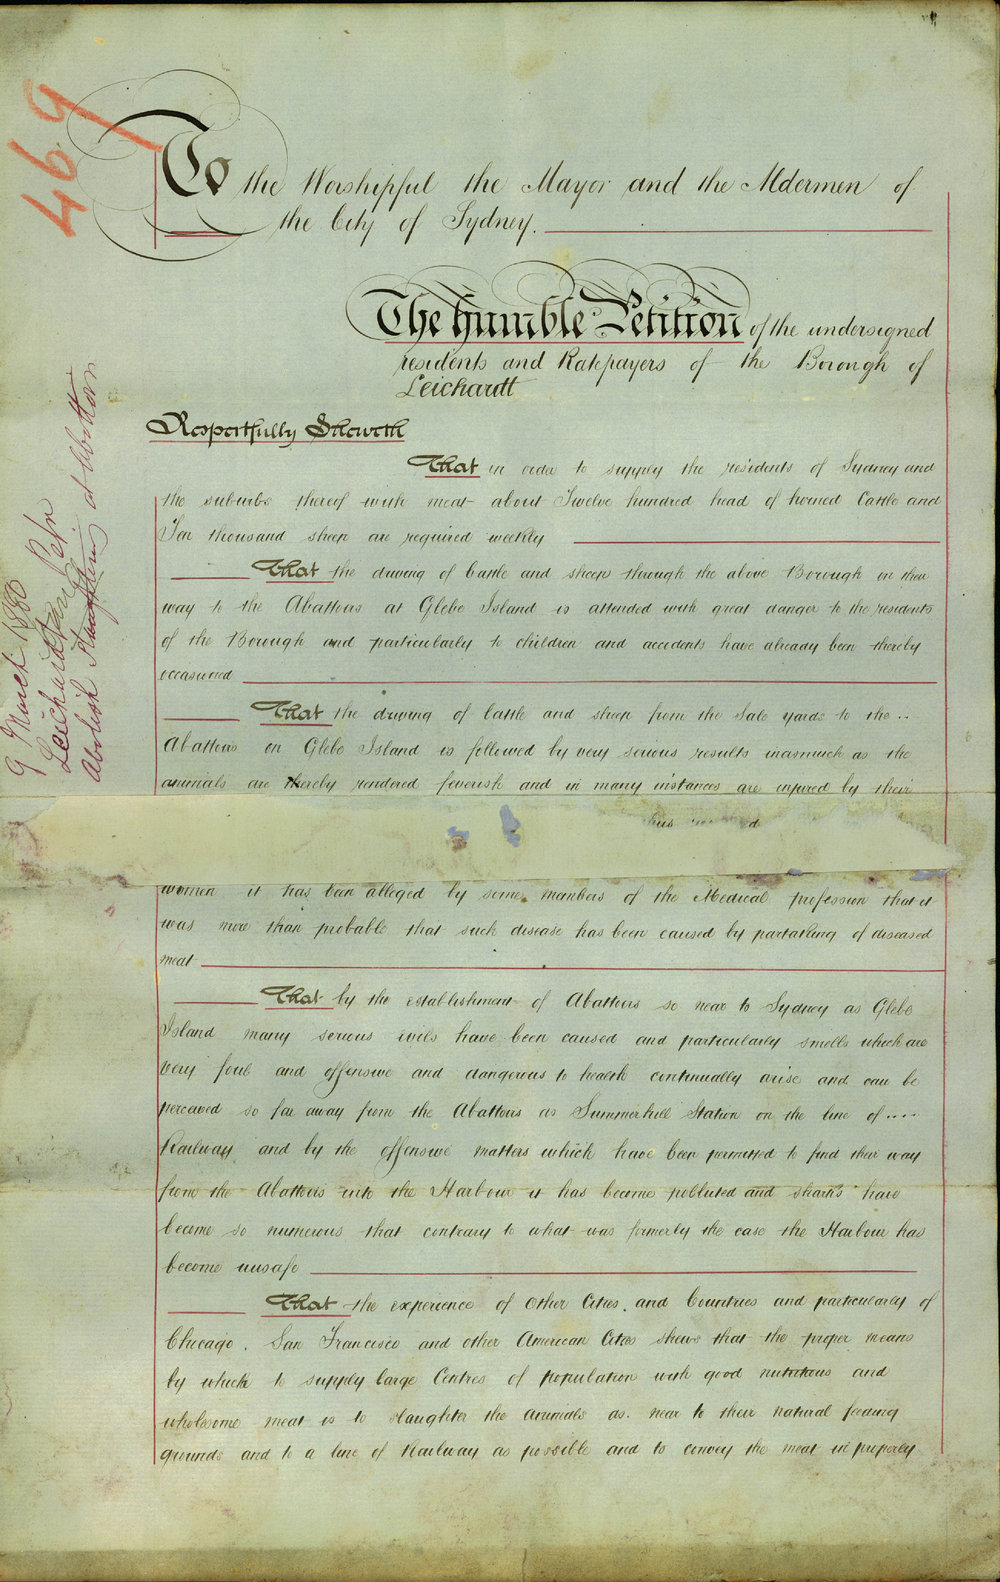 469
To the Worshipful the Mayor and the Aldermen of
the City of Sydney.
The humble Petition of the undersigned
residents and Ratepayers of the Borough of
Leichardt
Respectfully Sheweth
That in order to supply the residents of Sydney and
the suburbs thereof with meat about Twelve hundred head of horned Cattle and
Ten thousand sheep are required weekly
That the driving of Cattle and sheep through the above Borough on their
way to the Abattoirs at Glebe Island is attended with great danger to the residents
of the Borough and particularly to children and accidents have already been thereby
occasioned
That the driving of Cattle and sheep from the Sale yards to the ..
Abattoirs on Glebe Island is followed by very serious results inasmuch as the
animals are thereby rendered feverish and in many instances are injured by their
women it has been alleged by some members of the Medical profession that it
was more than probable that such disease has been caused by partaking of diseased
meat
That by the establishment of Abattoirs so near to Sydney as Glebe
Island many serious evils have been caused and particularly smells which are
very foul and offensive and dangerous to health continually arise and can be
perceived so far away from the Abattoirs as Summerhill Station on the line of ....
Railway and by the offensive matters which have been permitted to find their way
from the Abattoirs into the Harbour it has become polluted and sharks have
become so numerous that contrary to what was formerly the case the Harbour has
become unsafe
That the experience of other Cities, and Countries and particularly of
Chicago, San Francisco and other American Cities shews that the proper means
by which to supply large Centres of population with good nutritious and
wholesome meat is to slaughter the animals as near to their natural feeding
grounds and to a line of Railway as possible and to convey the meat in properly
9 March 1880
Leichardt Petn
Abolish Slaughtering at abattoirs